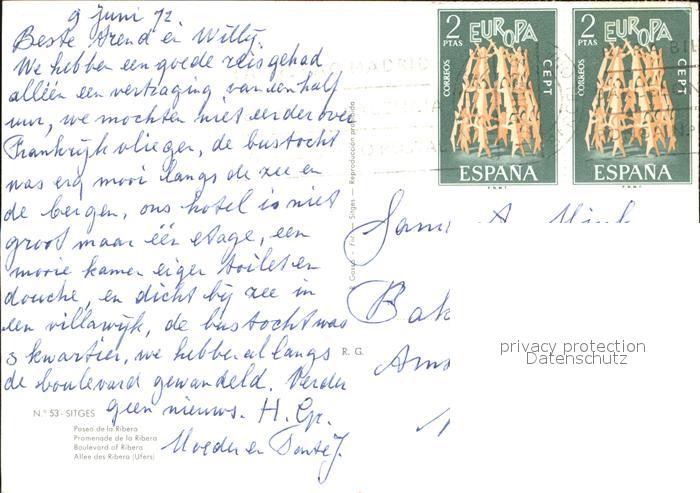 9 Juni 72.
Beste Arend en Willy.
We hebben een goede reis gehad
alléén een vertraging van een half
uur, we mochten niet eerder over
Frankrijk vliegen, de bustocht
was erg mooi langs de zee en
de bergen, ons hotel is niet
groot maar één etage, een
mooie kamer eigen toilet en
douche, en dicht bij zee in
een villawijk, de bustocht was
3 kwartier, we hebben al langs
de boulevard gewandeld. Verder
geen nieuws. H. Gr.
Moeder en Tante J.
N.º 53 - SITGES
Paseo de la Ribera
Promenade de la Ribera
Boulevard of Ribera
Allee des Ribera (Ufers)
Sitges — Reproducción prohibida
R. G.
2 PTAS EUROPA
CORREOS
CEPT
ESPAÑA
F.N.M.T.
2 PTAS EUROPA
CORREOS
CEPT
ESPAÑA
F.N.M.T.
MADRID
Fam. A.
Bak
Ams
privacy protection
Datenschutz